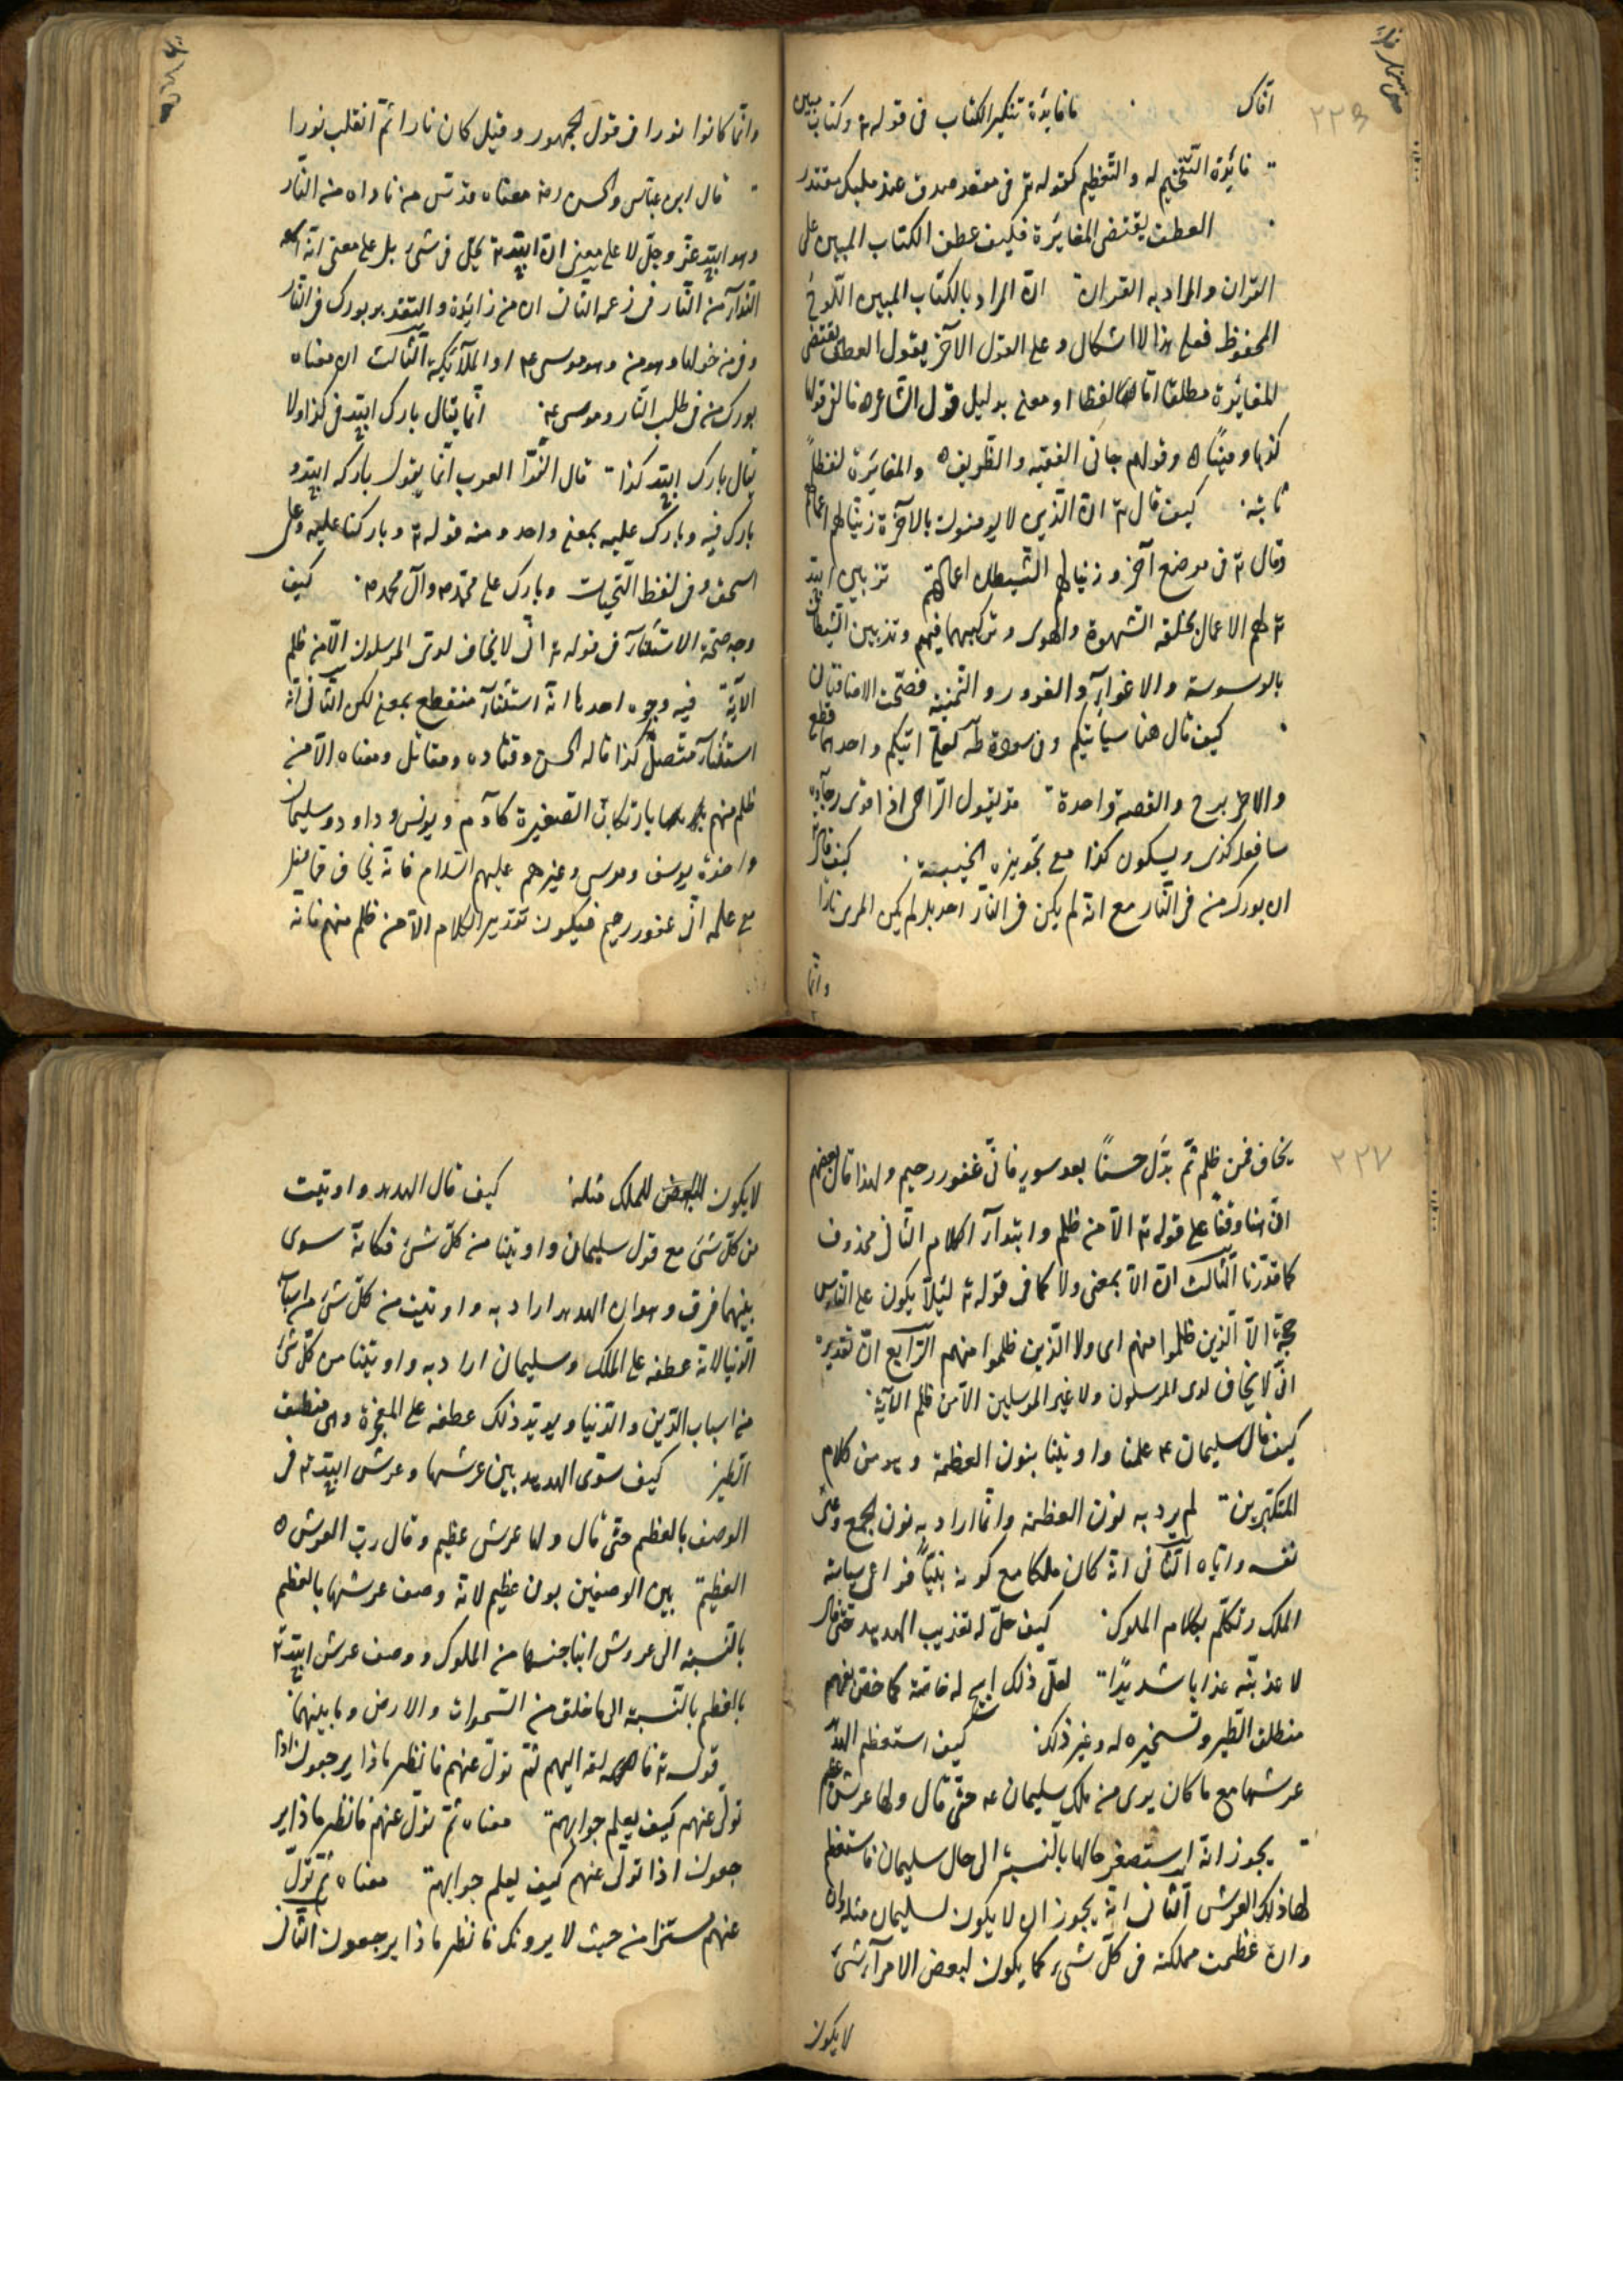 افاك ما فايدة تنكير الكتاب فى قوله تع وكتاب مبين
فايدة التفخيم له والتعظيم كقوله تع فى مقعد صدق عند مليك مقتدر
العطف يقتضى المغايرة فكيف عطف الكتاب المبين على
القران والمراد به القران ان المراد بالكتاب المبين اللوح
المحفوظ فعلى هذا لا اشكال وعلى القول الآخر يقول العطف يقتضى
المغايرة مطلقا اما لفظا او معنى بدليل قول الشاعر فالفى قولها
كذبا ومينًا وقولهم جانى الفقيه والظريف والمغايرة لفظا
ثابتة كيف قال تع ان الذين لا يومنون بالآخرة زينا لهم اعمالهم
وقال تع فى موضع آخر وزين لهم الشيطان اعمالهم تزيين الله
تع لهم الاعمال بخلقه الشهوة والهوى وتركيبهما فيهم وتزيين الشيطان
بالوسوسة والاغوآء والغرور والتمنية فصحت الاضافتان
كيف قال هنا سيآتيكم وفى سورة طه لعلى اتيكم واحدهما قطع
والاخر برج والقصة واحدة قد يقول الراجى اذا قوى رجآؤه
سافعل كذى ويسكون كذا مع تجويزه الخيبة كيف قال
ان بورك من فى النار مع انه لم يكن فى النار احد بل لم يكن المرى نارا
وانما
وانما كانوا نورا فى قول الجمهور وقيل كان نارا ثم انقلب نورا
قال ابن عباس والحسن رضه معناه قدس من ناداه من النار
وهو الله عز وجل لا على معنى ان الله تع يحل فى شئ بل على معنى انه اسمعه
الندآء من النار فى زعمه الثانى ان من زايدة والتقدير بورك فى النار
وفى من حولها وهو من وهو موسى ع م او الملآئكة الثالث ان معناه
بورك من فى طلب النار وموسى ع م انما يقال بارك الله فى كذا ولا
يقال بارك الله كذا قال الفرّآ العرب انما يقول باركه الله و
بارك فيه وبارك عليه بمعنى واحد ومنه قوله تع وباركنا عليه وعلى
اسحق وفى لفظ التحيات وبارك على محمد وآل محمد كيف
وجه صحة الاستثنآء فى قوله تع انى لا يخاف لدى المرسلون الا من ظلم
الآية فيه وجوه احدها انه استثنآء منقطع بمعنى لكن الثانى انه
استثنآء متصل كذا قاله الحسن وقتاده ومقاتل ومعناه الا من
ظلم منهم بارتكاب الصغيرة كآدم ويونس وداود وسليمان
واخوة يوسف وموسى وغيرهم عليهم السلام فانه يخاف مما فعل
مع علمه انى غفور رحيم فيكون تقدير الكلام الا من ظلم منهم فانه
يخاف فمن ظلم ثم بدّل حسنًا بعد سوء فانى غفور رحيم ولهذا قال بعضهم
ان هنا وقفًا على قوله تع الا من ظلم وابتدآء الكلام الثانى محذوف
كما قدّرنا الثالث ان الا بمعنى ولا كما فى قوله تع لئلا يكون على الناس
حجة الا الذين ظلموا منهم اى ولا الذين ظلموا منهم الرابع ان تقديره
انى لا يخاف لدى المرسلون ولا غير المرسلين الا من ظلم الآية
كيف قال سليمان ع م علمنا واوتينا بنون العظمة وهو من كلام
المتكبرين لم يرد به نون العظمة وانما اراد به نون الجمع وعنى
نفسه واباه الثانى انه كان ملكا مع كونه نبيًا فراعى سياسة
الملك وتكلم بكلام الملوك كيف حلّ له تعذيب الهدهد حتى قال
لاعذبنه عذابا شديدًا لعلّ ذلك ابيح له خاصة كما خص بفهم
منطق الطير وتسخيره له وغير ذلك كيف استعظم الهدهد
عرشها مع ما كان يرى من ملك سليمان ع م حتى قال ولها عرش عظيم
يجوز انه استصغر حالها بالنسبة الى حال سليمان فاستعظم
لها ذلك العرش الثانى انه يجوز ان لا يكون لسليمان مثله
وان عظمت مملكته فى كل شىء كما يكون لبعض الامرآء شئ
لا يكون
لا يكون للملك مثله كيف قال الهدهد واوتيت
من كل شئ مع قول سليمان واوتينا من كل شئ فكانه سوى
بينهما فرق وهو ان الهدهد اراد به واوتيت من كل شئ من اسباب
الدنيا لانه عطفه على الملك وسليمان اراد به واوتينا من كل شئ
من اسباب الدين والدنيا ويويد ذلك عطفه على المعجزة وهى منطق
الطير كيف سوّى الهدهد بين عرشها وعرش الله تع فى
الوصف بالعظيم حتى قال ولها عرش عظيم وقال رب العرش
العظيم بين الوصفين بون عظيم لانه وصف عرشها بالعظم
بالنسبة الى عروش ابنا جنسها من الملوك ووصف عرش الله تع
بالعظم بالنسبة الى ما خلق من السموات والارض وما بينهما
قوله تع فالقه اليهم ثم تول عنهم فانظر ماذا يرجعون اذا
تولى عنهم كيف يعلم جوابهم معناه ثم تول عنهم فانظر ماذا ير
جعون اذا تولى عنهم كيف يعلم جوابهم معناه ثم تول
عنهم مستترا من حيث لا يرونك فانظر ماذا يرجعون الثانى